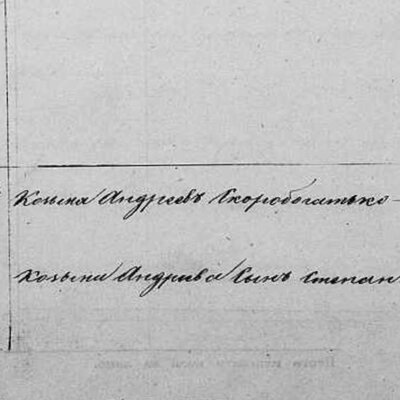 Козьма Андреевъ Скоробогатько -
Козьма Андріева Сынъ Степан